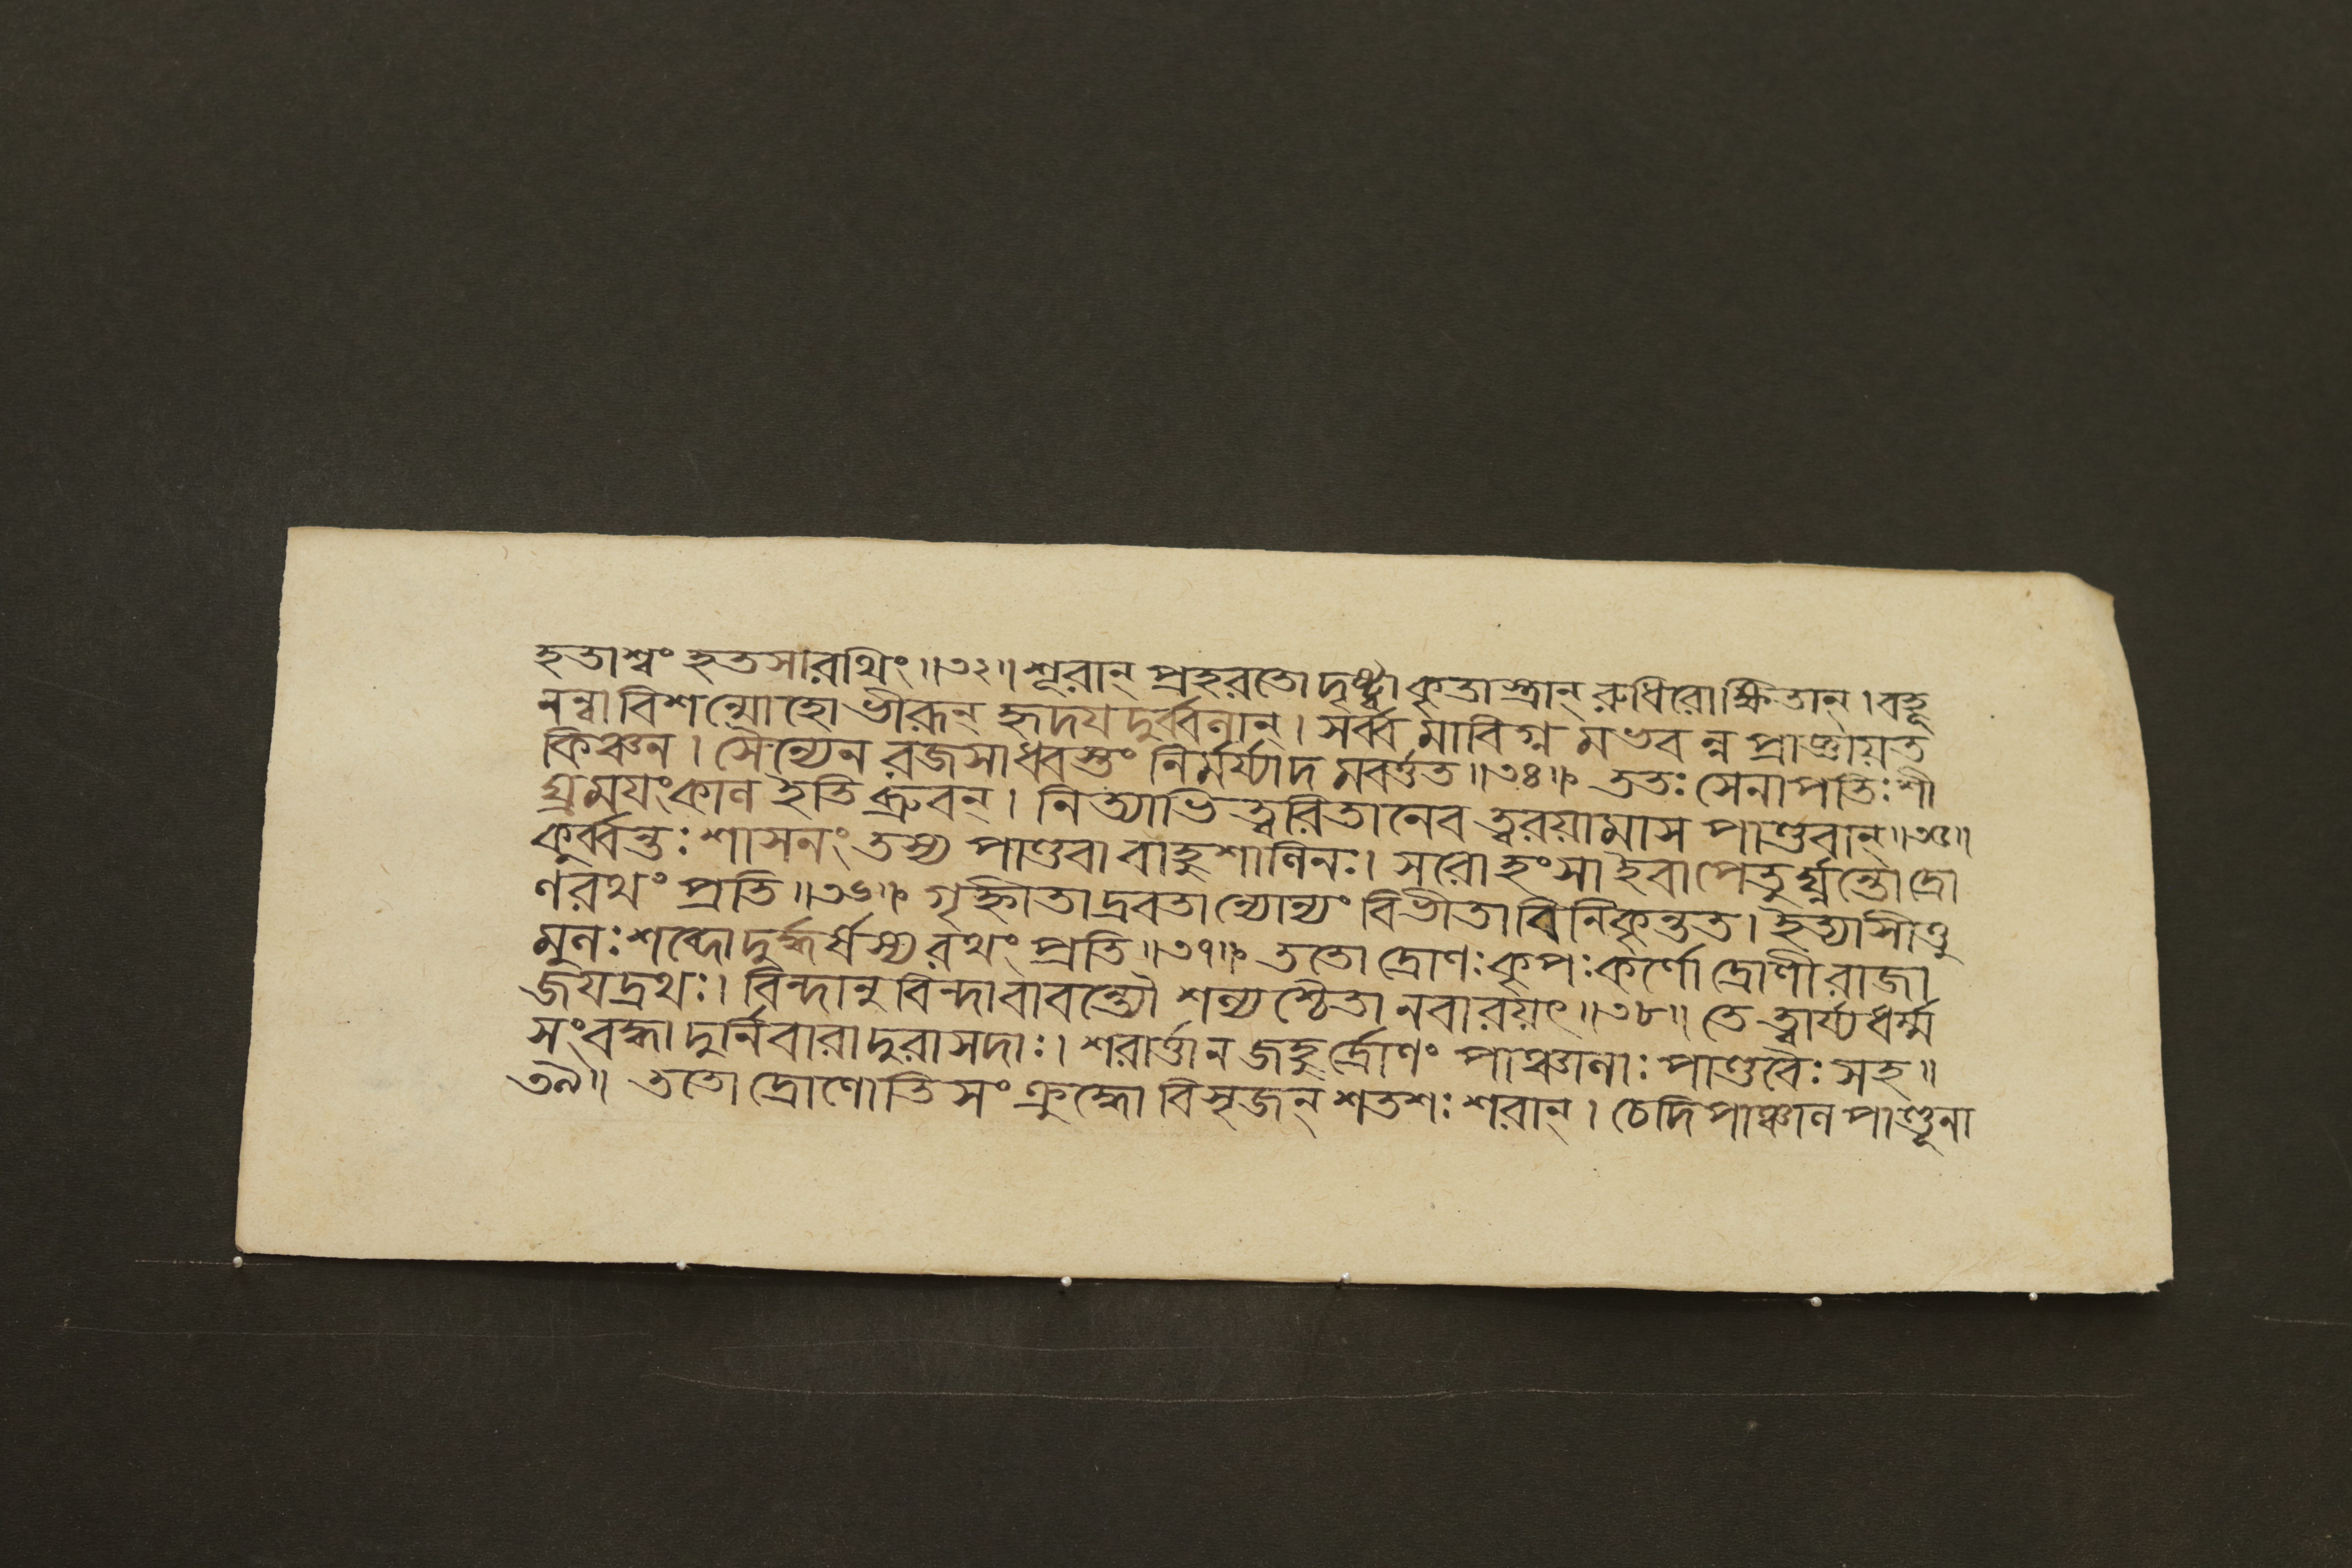 হতাশ্বং হতসারথিং॥৩২॥ শূরান্ প্রহরতো দৃষ্ট্বা কৃতাস্ত্রান্ রুধিরোক্ষিতান্। বহূ
নন্বাবিশন্মোহো ভীরূন্ হৃদয়দুর্ব্বলান্। সর্ব্বমাবিগ্নমভবন্ন প্রাজ্ঞায়ত
কিঞ্চন। সৈন্যেন রজসাধ্বস্তং নির্মর্য্যাদমবর্ত্তত॥৩৪॥ ততঃ সেনাপতিঃ শী
ঘ্রময়ংকাল ইতি ব্রুবন্। নিত্যাভিত্বরিতানেব ত্বরয়ামাস পাণ্ডবান্॥৩৫॥
কুর্ব্বন্তঃ শাসনং তস্য পাণ্ডবা বাহুশালিনঃ। সরো হংসা ইবাপেতুর্ঘ্নন্তো দ্রো
ণরথং প্রতি॥৩৬॥ গৃহ্নীতাদ্রবতান্যোন্যং বিভীতাবিনিকৃন্তত। ইত্যাসীত্তু
মুলঃ শব্দো দুর্দ্ধর্ষস্য রথং প্রতি॥৩৭॥ ততো দ্রোণঃ কৃপঃ কর্ণো দ্রোণী রাজা
জয়দ্রথঃ। বিন্দানুবিন্দাবাবন্ত্যৌ শল্যশ্চৈতানবারয়ৎ॥৩৮॥ তে ত্বার্য্যধর্ম্ম
সংবদ্ধা দুর্নিবারা দুরাসদাঃ। শরার্ত্তা ন জহুর্দ্রোণং পাঞ্চালাঃ পাণ্ডবৈঃ সহ॥
৩৯॥ ততো দ্রোণোতিসংক্রুদ্ধো বিসৃজন্ শতশঃ শরান্। চেদিপাঞ্চালপাণ্ডূনা